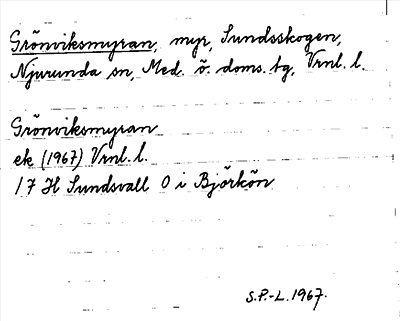 Grönviksmyran, myr, Sundsskogen,
Njurunda sn, Med. ö. doms. tg, Vrnl. l.
Grönviksmyran
ek (1967) Vrnl. l.
17 H Sundsvall O i Björkön
S.P.-L. 1967.